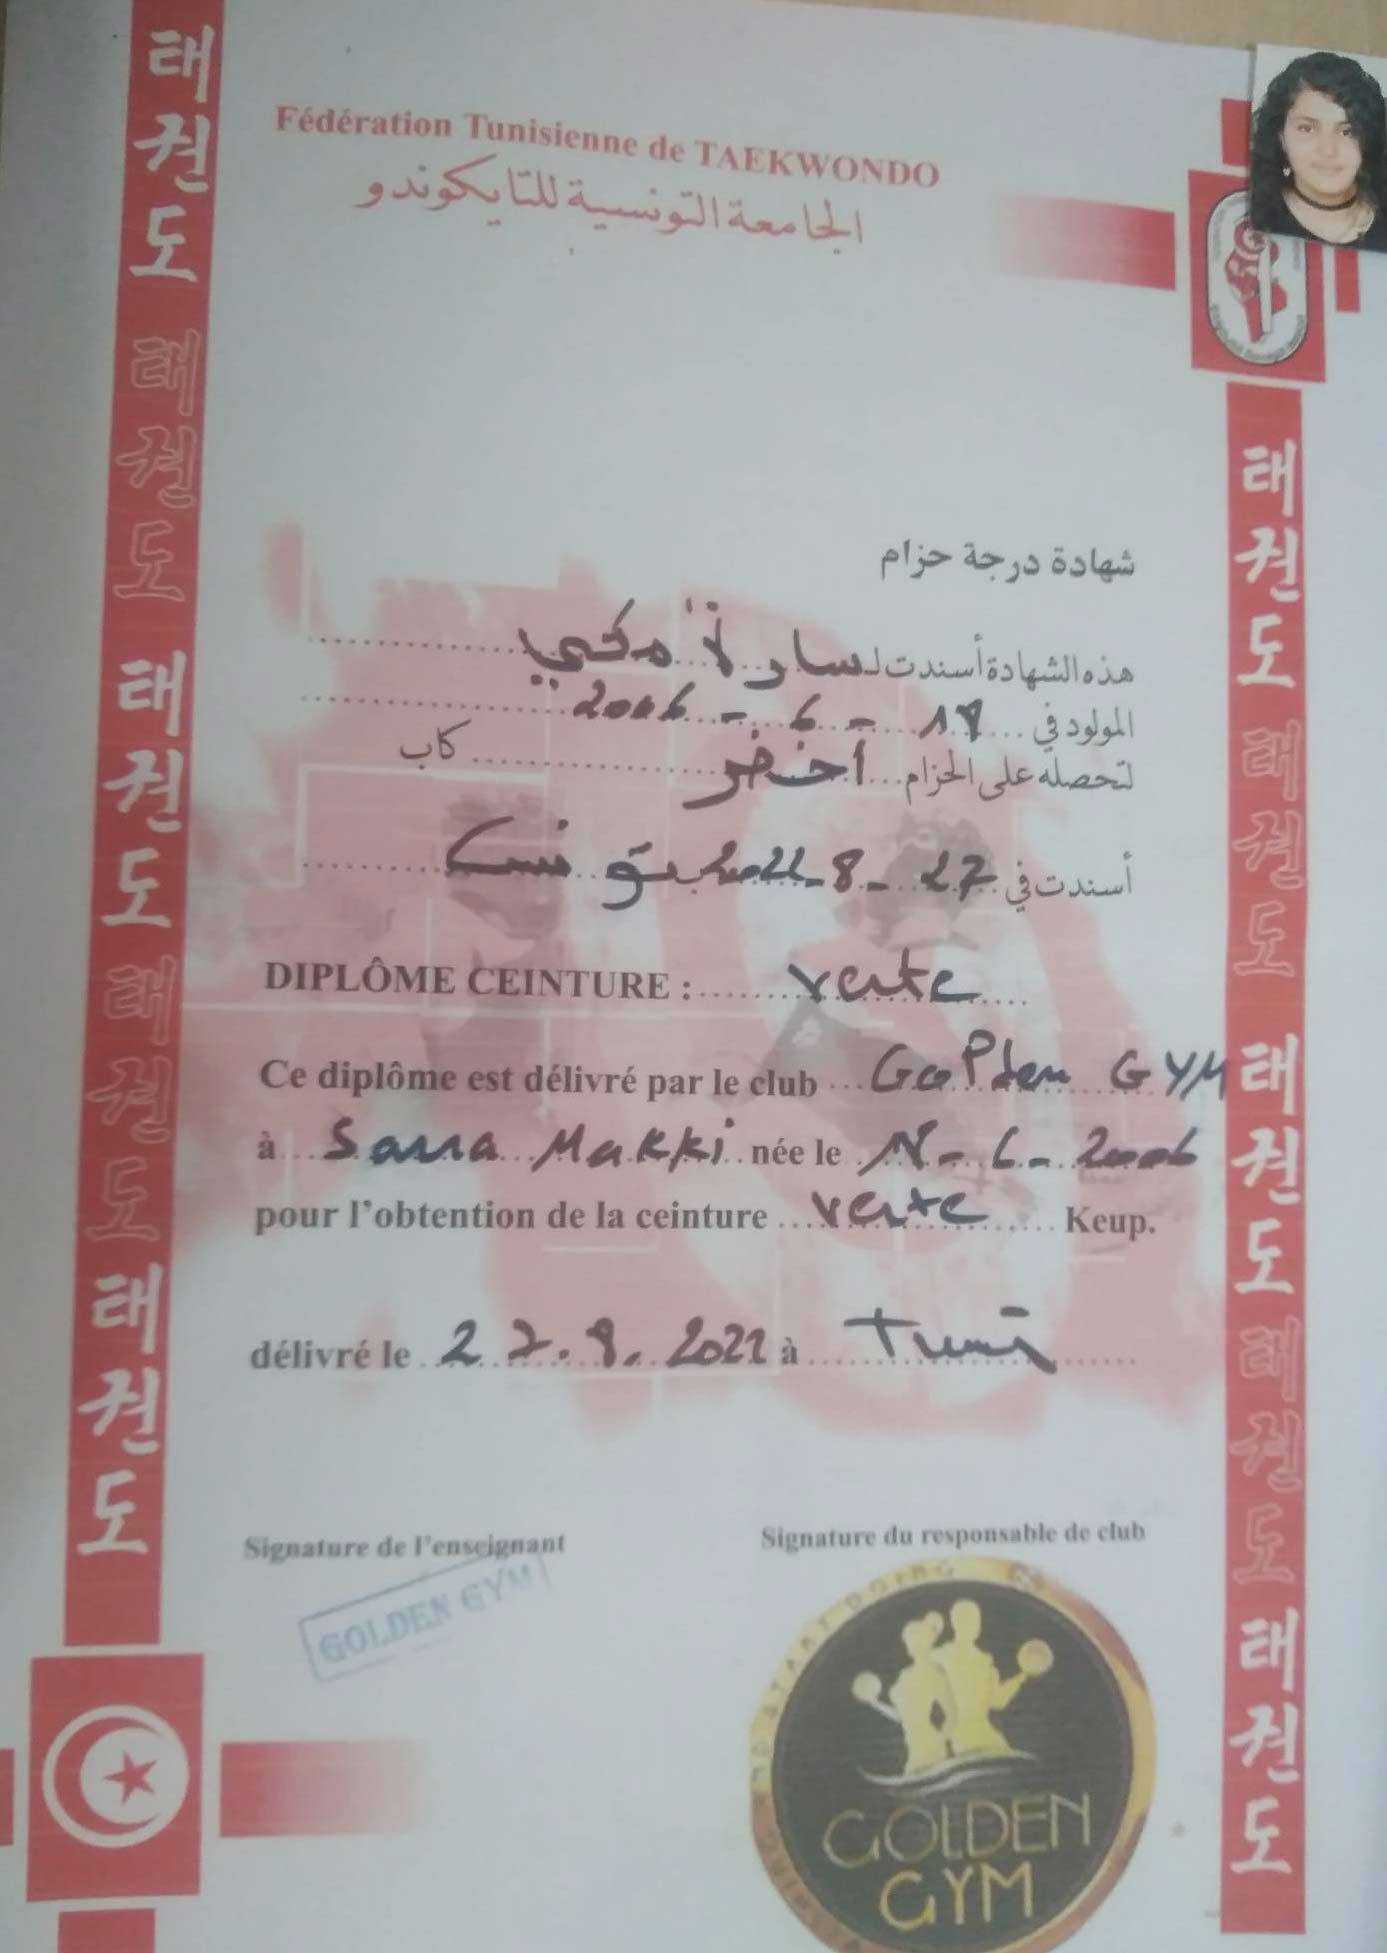 Fédération Tunisienne de TAEKWONDO
الجامعة التونسية للتايكوندو
태권도 태권도 태권도 태권도 태권도
شهادة درجة حزام
هذه الشهادة أسندت لـ سارة مكي
المولود في 18 - 6 - 2006
لتحصله على الحزام أخضر كاب
أسندت في 27 - 8 - 2022 بتونس
DIPLÔME CEINTURE : verte
Ce diplôme est délivré par le club Golden GYM
à Sarra Makki née le 18 - 6 - 2006
pour l'obtention de la ceinture verte Keup.
délivré le 27. 8. 2022 à Tunis
Signature de l'enseignant
Signature du responsable de club
GOLDEN GYM
GOLDEN
GYM
태권도 태권도 태권도 태권도 태권도